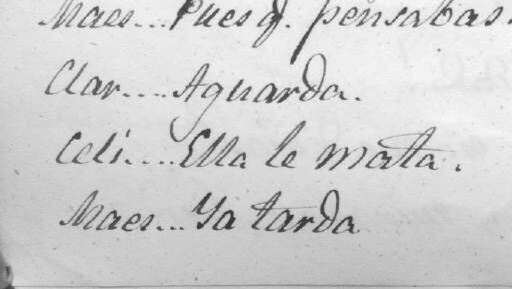 Maes... Pues q. pensabas.
Clar.... Aguarda.
Celi.... Ella le mata.
Maes... Ya tarda